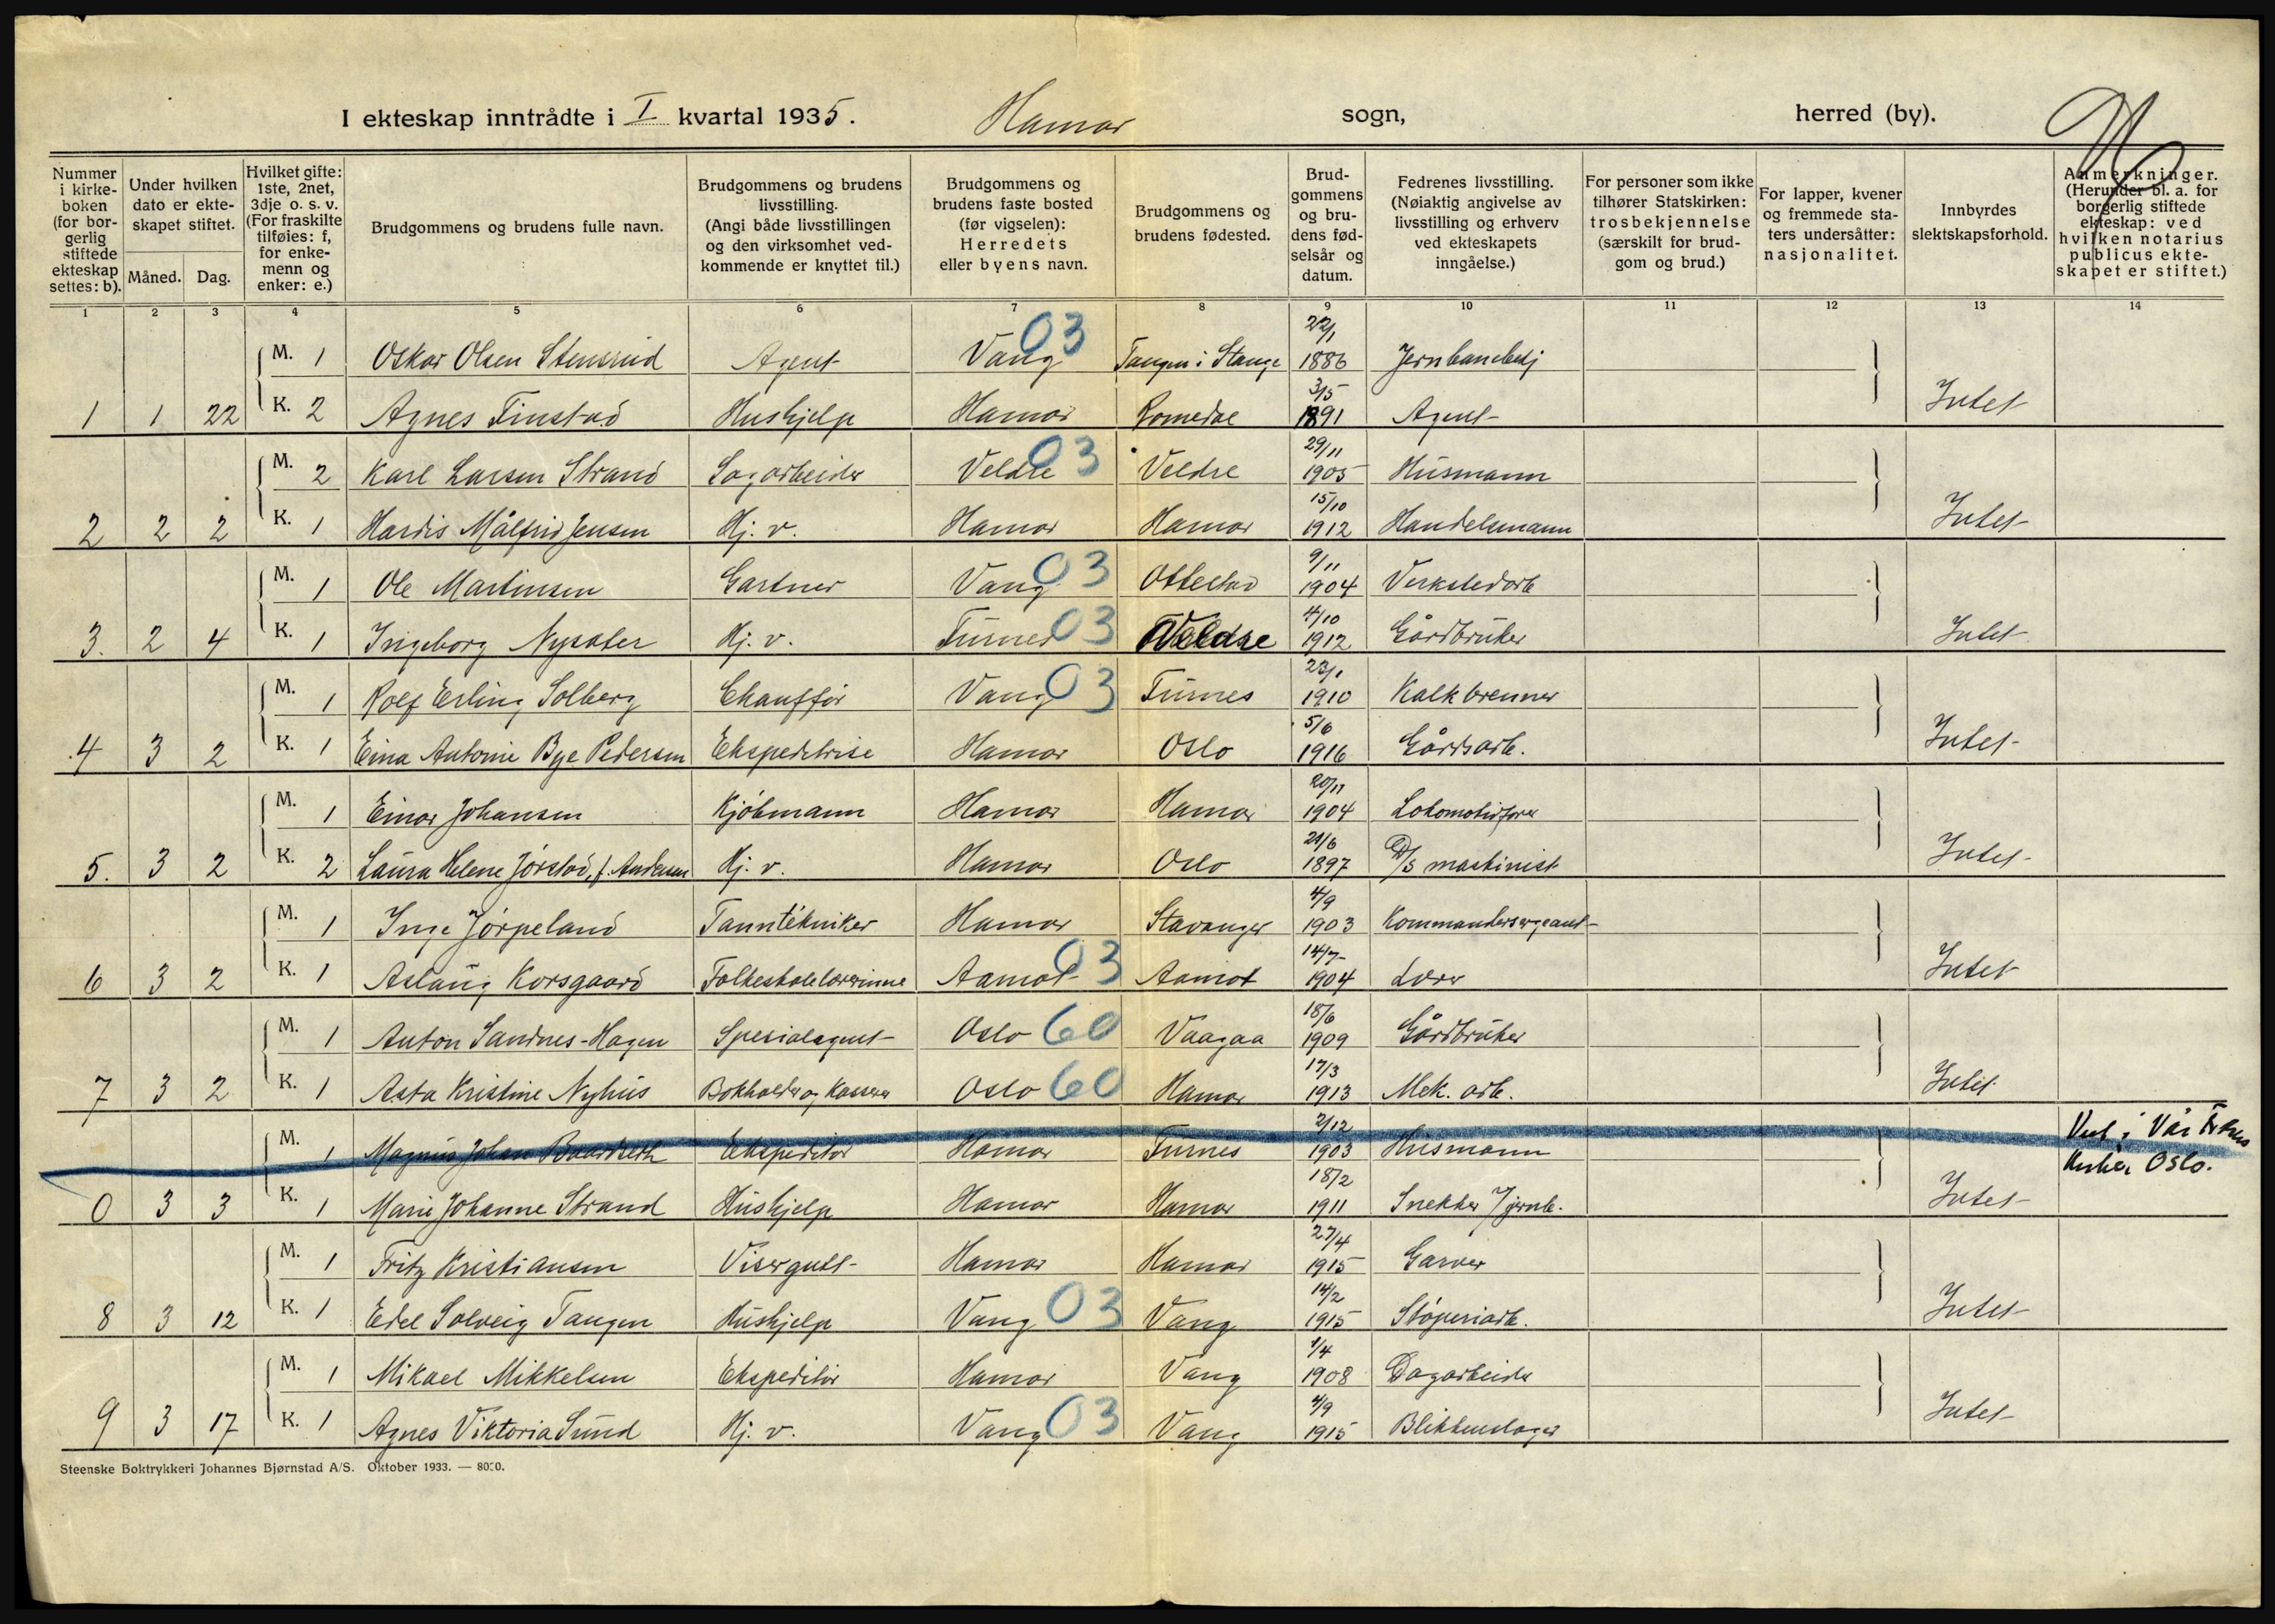 I ekteskap inntrådte i I kvartal 1935. Hamar sogn, herred (by).
Nummer i kirkeboken (for borgerlig stiftede ekteskap settes: b).
Under hvilken dato er ekteskapet stiftet.
Måned. Dag.
Hvilket gifte: 1ste, 2net, 3dje o. s. v. (For fraskilte tilføies: f, for enkemenn og enker: e.)
Brudgommens og brudens fulle navn.
Brudgommens og brudens livsstilling. (Angi både livsstillingen og den virksomhet vedkommende er knyttet til.)
Brudgommens og brudens faste bosted (før vigselen): Herredets eller byens navn.
Brudgommens og brudens fødested.
Brudgommens og brudens fødselsår og datum.
Fedrenes livsstilling. (Nøiaktig angivelse av livsstilling og erhverv ved ekteskapets inngåelse.)
For personer som ikke tilhører Statskirken: trosbekjennelse (særskilt for brudgom og brud.)
For lapper, kvener og fremmede staters undersåtter: nasjonalitet.
Innbyrdes slektskapsforhold.
Anmerkninger. (Herunder bl. a. for borgerlig stiftede ekteskap: ved hvilken notarius publicus ekteskapet er stiftet.)
1 2 3 4 5 6 7 8 9 10 11 12 13 14
M. 1 Oskar Olsen Stensrud Agent Vang 03 Tangen i Stange 22/1 1886 Jernbanebetj
1 1 22 K. 2 Agnes Finstad Hushjelp Hamar Romedal 3/5 1891 Agent Intet
M. 2 Karl Larsen Strand Sagarbeider Veldre 03 Veldre 29/11 1905 Husmann
2 2 2 K. 1 Hardis Målfrid Jensen Hj. v. Hamar Hamar 15/10 1912 Handelsmann Intet
M. 1 Ole Martinsen Gartner Vang 03 Ottestad 9/11 1904 Verkstedarb
3. 2 4 K. 1 Ingeborg Nysæter Hj. v. Furnes 03 Veldre 4/10 1912 Gårdbruker Intet
M. 1 Rolf Erling Solberg Chauffør Vang 03 Furnes 23/1 1910 Kalkbrenner
4 3 2 K. 1 Eina Antonie Bye Pedersen Ekspeditrise Hamar Oslo 5/6 1916 Gårdsarb. Intet
M. 1 Einar Johansen Kjøbmann Hamar Hamar 20/11 1904 Lokomotivfører
5. 3 2 K. 2 Laura Helene Jørstad, f. Andersen Hj. v. Hamar Oslo 21/6 1897 D/S maskinist Intet
M. 1 Inge Jørpeland Tanntekniker Hamar Stavanger 4/9 1903 Kommandersergeant
6 3 2 K. 1 Aslaug Korsgaard Folkeskolelærerinne Aamot 03 Aamot 14/7 1904 Lærer Intet
M. 1 Anton Sandnes-Hagen Spesialagent Oslo 60 Vaagaa 18/6 1909 Gårdbruker
7 3 2 K. 1 Asta Kristine Nyhus Bokholder og Kasserer Oslo 60 Hamar 17/3 1913 Mek. arb. Intet
M. 1 Magnus Johan Baardseth Ekspeditør Hamar Furnes 2/12 1903 Husmann Viet i Vår Frelsers
0 3 3 K. 1 Marie Johanne Strand Hushjelp Hamar Hamar 18/2 1911 Snekker v/jernb. Intet Kirke, Oslo.
M. 1 Fritz Kristiansen Visergutt Hamar Hamar 27/4 1915 Garver
8 3 12 K. 1 Edel Solveig Tangen Hushjelp Vang 03 Vang 14/2 1915 Støperiarb. Intet
M. 1 Mikael Mikkelsen Ekspeditør Hamar Vang 1/4 1908 Dagarbeider
9 3 17 K. 1 Agnes Viktoria Sund Hj. v. Vang 03 Vang 4/9 1915 Blikkenslager Intet
Steenske Boktrykkeri Johannes Bjørnstad A/S. Oktober 1933. — 8000.